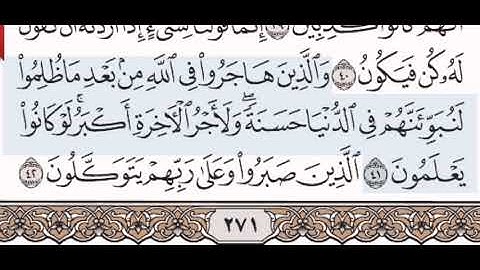 أَنَّهُمْ كَانُوا۟ كَٰذِبِينَ ٣٩ إِنَّمَا قَوْلُنَا لِشَىْءٍ إِذَآ أَرَدْنَٰهُ أَن نَّقُولَ
لَهُۥ كُن فَيَكُونُ ٤٠ وَٱلَّذِينَ هَاجَرُوا۟ فِى ٱللَّهِ مِنۢ بَعْدِ مَا ظُلِمُوا۟
لَنُبَوِّئَنَّهُمْ فِى ٱلدُّنْيَا حَسَنَةً ۖ وَلَأَجْرُ ٱلْءَاخِرَةِ أَكْبَرُ ۚ لَوْ كَانُوا۟
يَعْلَمُونَ ٤١ ٱلَّذِينَ صَبَرُوا۟ وَعَلَىٰ رَبِّهِمْ يَتَوَكَّلُونَ ٤٢
٢٧١